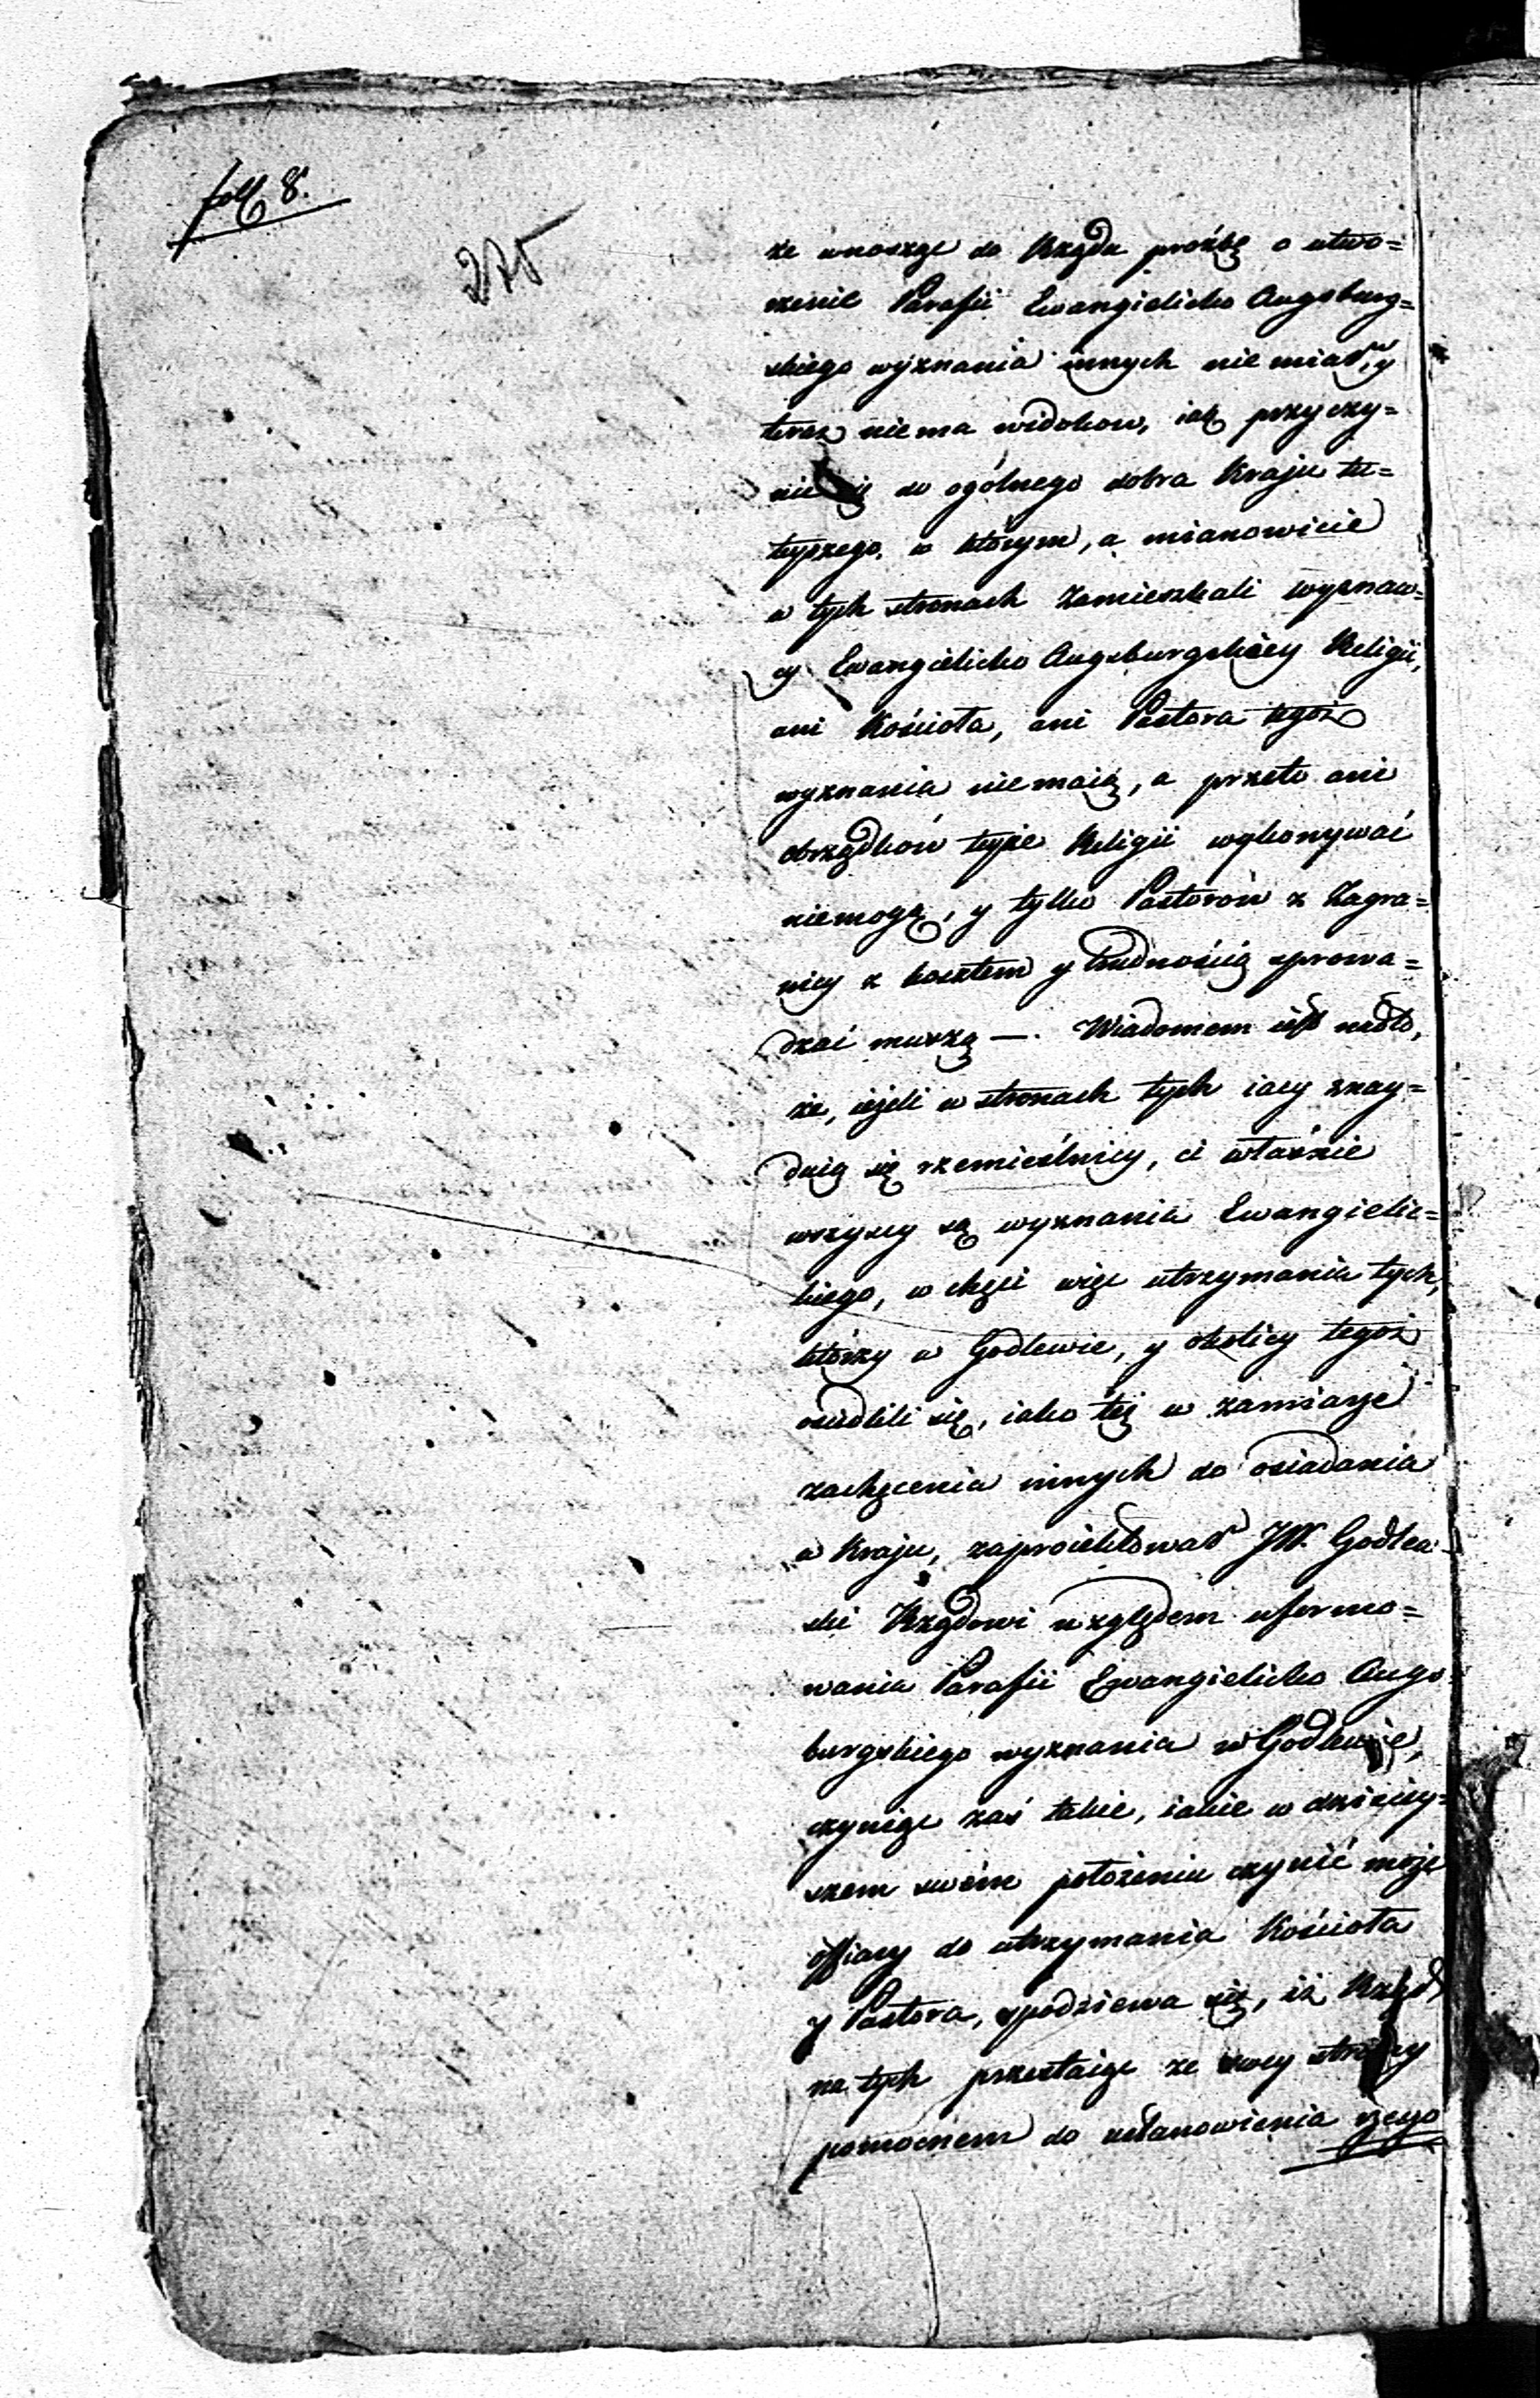 foll 8.
275
że wnosząc do Rządu proźbę o utwo=
rzenie Parafii Ewangielicko Augsburg=
skiego wyznania innych nie miał, y
teraz niema widokow, iak przyczy=
nie się do ogólnego dobra Kraju tu=
teyszego, w którym, a mianowicie
w tych stronach Zamieszkali wyznaw=
cy Ewangielicko Augsburgskiey Religii,
ani Kościoła, ani Pastora tegoż
wyznania niemaią, a przeto ani
obrządków teyże Religii wykonywać
niemogą, y tylko Pastorów z Zagra=
nicy z kosztem y trudnością sprowa=
dzać muszą —. Wiadomem iest nadto,
że, ieżeli w stronach tych iacy znay=
duią się rzemieślnicy, ci właśnie
wszyscy są wyznania Ewangielic=
kiego, w chęci więc utrzymania tych,
którzy w Godlewie, y okolicy tegoż
osiedlili się, iako też w zamiarze
zachęcenia innych do osiadania
w Kraju, zaproiektował JW. Godlew
ski Rządowi względem uformo=
wania Parafii Ewangielicko Augs
burgskiego wyznania w Godlewie,
czyniąc zaś takie, iakie w dzisiey=
szem swém położeniu czynić może
offiary do utrzymania Kościoła
y Pastora, spodziewa się, iż Rząd
na tych przestaiąc ze swey strony
pomocnem do ustanowienia rzego